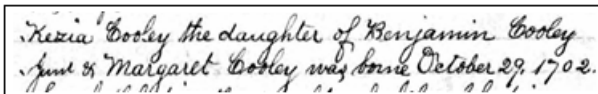 Kezia Cooley the daughter of Benjamin Cooley
Junr & Margaret Cooley was borne October 29, 1702.